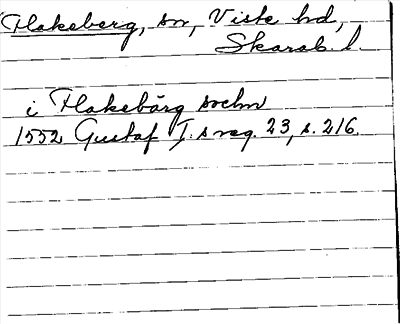 Flakeberg, sn, Viste hd,
Skarab. l.
i Flakebärg sochn
1552 Gustaf I:s reg. 23, s. 216